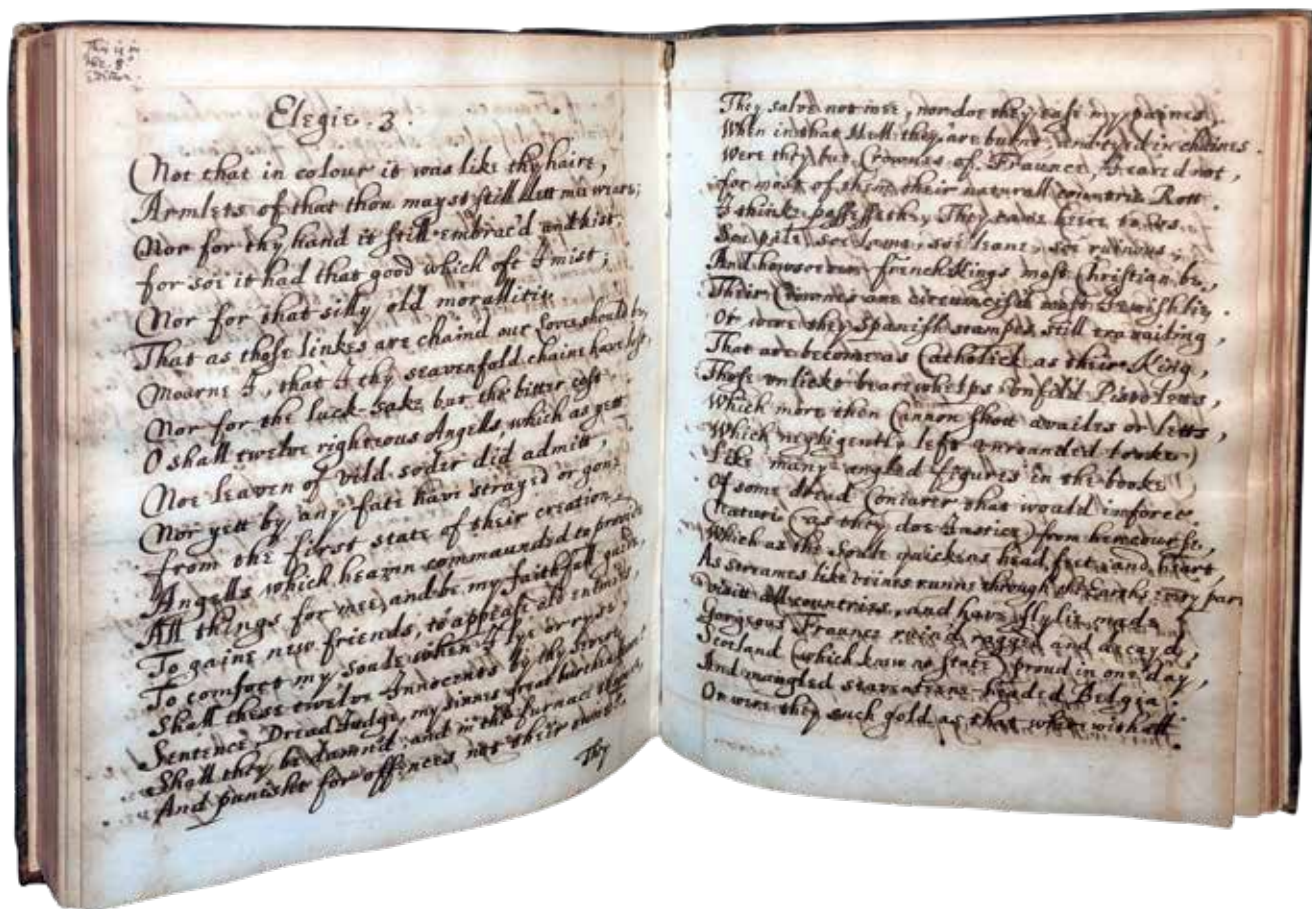 This is in
Edition.
Elegie. 3
Not that in colour it was like thy haire,
Armlets of that thou mayst still lett mee weare;
Nor for thy hand it still embrac'd and kist,
for soe it had that good which oft I mist;
Nor for that silly old morallitie
That as those linkes are chaind our loves should be,
Mourne I, that I thy seavenfold chaine have lost,
Nor for the luck-sake but the bitter cost
O shall twelve righteous Angells, which as yett
Noe leaven of vild soder did admitt,
Nor yett by any fate have stray'd or gone
from the first state of their creation,
Angells which heaven commaunded to provide
All things for mee, and be my faithfull guide,
To gaine new friends, to appease old enemies,
To comfort my soule when I lye or ryse.
Shall these twelve Innocents by thy severe
Sentence, Dread Judge, my sinnes great burthen beare
Shall they be damnd; and in the furnace throwne,
And punisht for offences not their owne.
They
They salve not mee, nor doe they ease my paines
When in that Hell they are burnt and tyed in chaines.
Were they but Crownes of Fraunce, I car'd not,
for most of them their naturall countrie Rott
I think possesseth, They come heere to us
Soe pale, soe lame, soe leane, soe ruinous;
And howsoever french Kings most Christian be,
Their Crownes are circumcis'd most Jewishlie.
Or were they Spanish stampes still travailing,
That are become as Catholick as their King,
Those unlickt beare whelps unfil'd Pistoletts,
Which more then Cannon shott availes or letts,
Which negligently left unrounded looke
Like many angled figures in the booke
Of some dread Coniurer that would inforce
Nature (as they doe Justice) from her course,
Which as the Soule quickens head, feet, and heart,
As streames like veines runne through the Earths every part
Visitt all countries, and have slylie made
Gorgeous Fraunce ruin'd ragged and decay'd,
Scotland (which knew no state) proud in one day,
And mangled seaventeene-headed Belgia:
Or were they such gold as that wherewithall